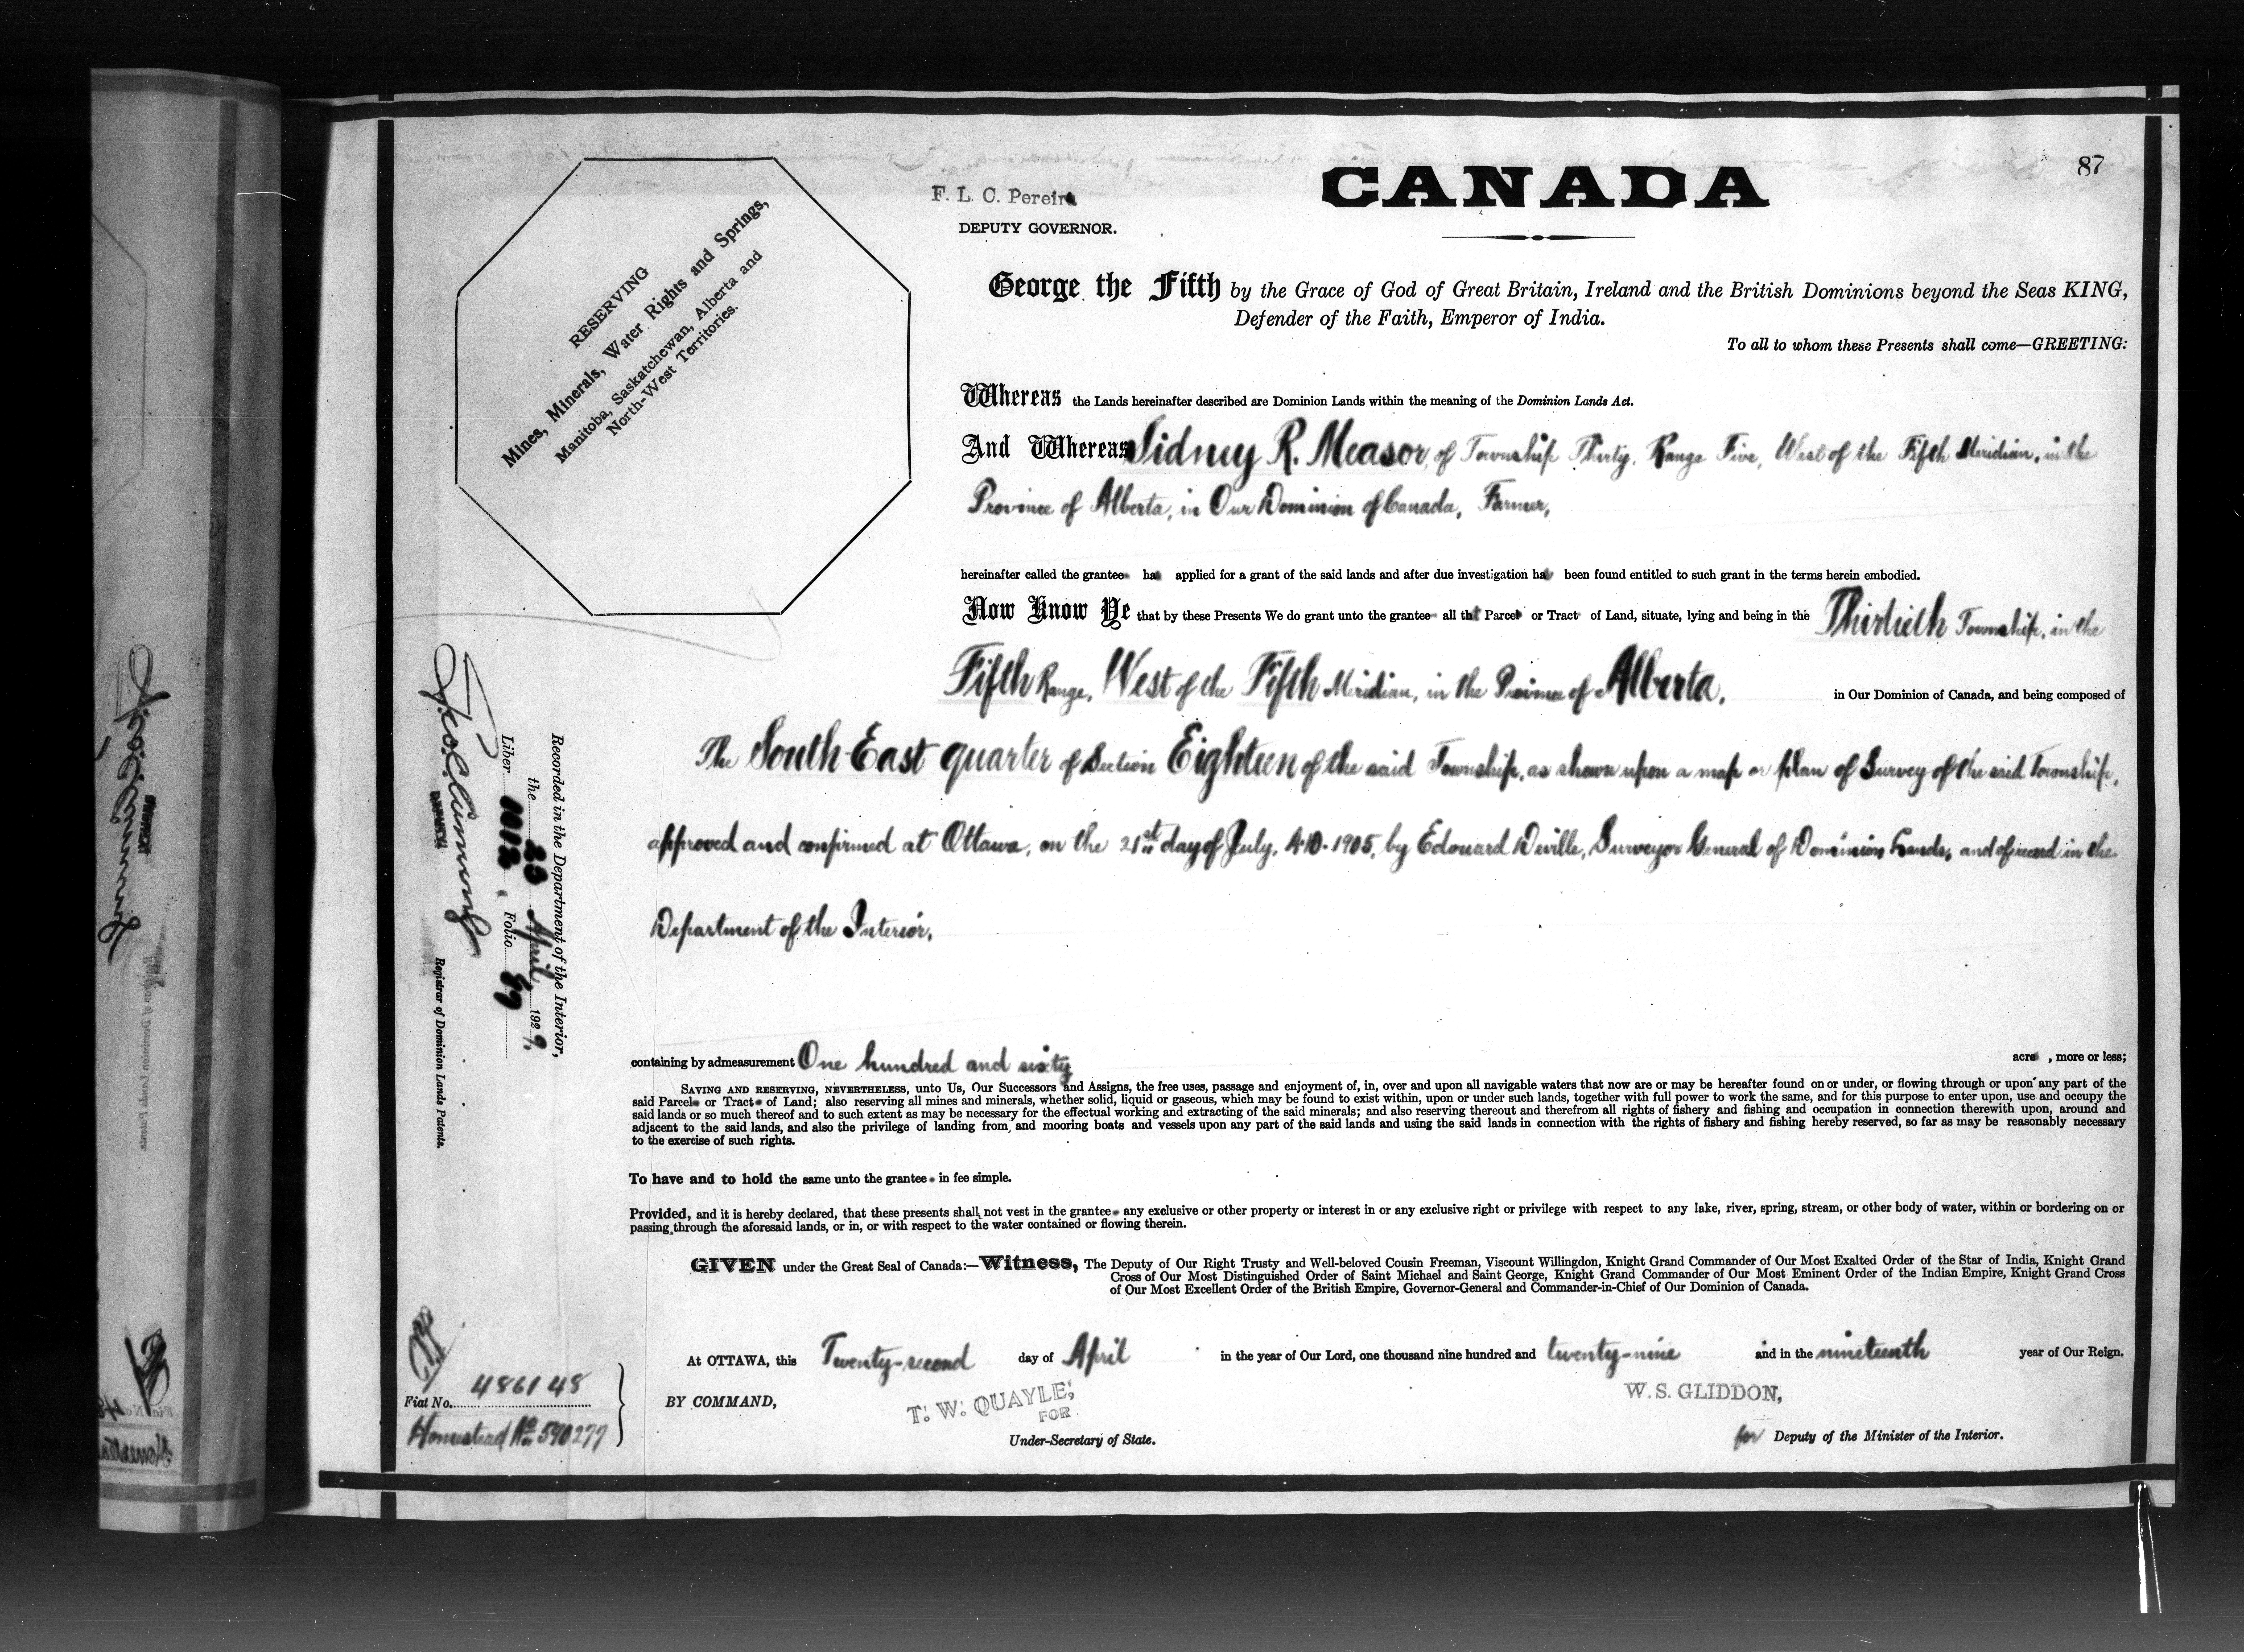 87
CANADA
F. L. C. Pereira
DEPUTY GOVERNOR.
RESERVING
Mines, Minerals, Water Rights and Springs,
Manitoba, Saskatchewan, Alberta and
North-West Territories.
George the Fifth by the Grace of God of Great Britain, Ireland and the British Dominions beyond the Seas KING,
Defender of the Faith, Emperor of India.
To all to whom these Presents shall come—GREETING:
Whereas the Lands hereinafter described are Dominion Lands within the meaning of the Dominion Lands Act.
And Whereas Sidney R. Measor, of Township Thirty, Range Five, West of the Fifth Meridian, in the
Province of Alberta, in Our Dominion of Canada, Farmer,
hereinafter called the grantee ha applied for a grant of the said lands and after due investigation ha been found entitled to such grant in the terms herein embodied.
Now Know Ye that by these Presents We do grant unto the grantee all th t Parcel or Tract of Land, situate, lying and being in the Thirtieth Township, in the
Fifth Range, West of the Fifth Meridian, in the Province of Alberta, in Our Dominion of Canada, and being composed of
The South-East quarter of Section Eighteen of the said Township, as shown upon a map or plan of Survey of the said Township,
approved and confirmed at Ottawa, on the 21st day of July, A.D. 1905, by Edouard Deville, Surveyor General of Dominion Lands, and of record in the
Department of the Interior.
containing by admeasurement One hundred and sixty acre , more or less;
SAVING AND RESERVING, NEVERTHELESS, unto Us, Our Successors and Assigns, the free uses, passage and enjoyment of, in, over and upon all navigable waters that now are or may be hereafter found on or under, or flowing through or upon any part of the
said Parcel or Tract of Land; also reserving all mines and minerals, whether solid, liquid or gaseous, which may be found to exist within, upon or under such lands, together with full power to work the same, and for this purpose to enter upon, use and occupy the
said lands or so much thereof and to such extent as may be necessary for the effectual working and extracting of the said minerals; and also reserving thereout and therefrom all rights of fishery and fishing and occupation in connection therewith upon, around and
adjacent to the said lands, and also the privilege of landing from and mooring boats and vessels upon any part of the said lands and using the said lands in connection with the rights of fishery and fishing hereby reserved, so far as may be reasonably necessary
to the exercise of such rights.
To have and to hold the same unto the grantee in fee simple.
Provided, and it is hereby declared, that these presents shall not vest in the grantee any exclusive or other property or interest in or any exclusive right or privilege with respect to any lake, river, spring, stream, or other body of water, within or bordering on or
passing through the aforesaid lands, or in, or with respect to the water contained or flowing therein.
GIVEN under the Great Seal of Canada:—Witness, The Deputy of Our Right Trusty and Well-beloved Cousin Freeman, Viscount Willingdon, Knight Grand Commander of Our Most Exalted Order of the Star of India, Knight Grand
Cross of Our Most Distinguished Order of Saint Michael and Saint George, Knight Grand Commander of Our Most Eminent Order of the Indian Empire, Knight Grand Cross
of Our Most Excellent Order of the British Empire, Governor-General and Commander-in-Chief of Our Dominion of Canada.
At OTTAWA, this Twenty-second day of April in the year of Our Lord, one thousand nine hundred and twenty-nine and in the nineteenth year of Our Reign.
BY COMMAND,
T. W. QUAYLE,
FOR
Under-Secretary of State.
W. S. GLIDDON,
for Deputy of the Minister of the Interior.
Recorded in the Department of the Interior,
the 23 April, 1929,
Liber Folio
Registrar of Dominion Lands Patents.
Fiat No. 486148
Homestead No 590277